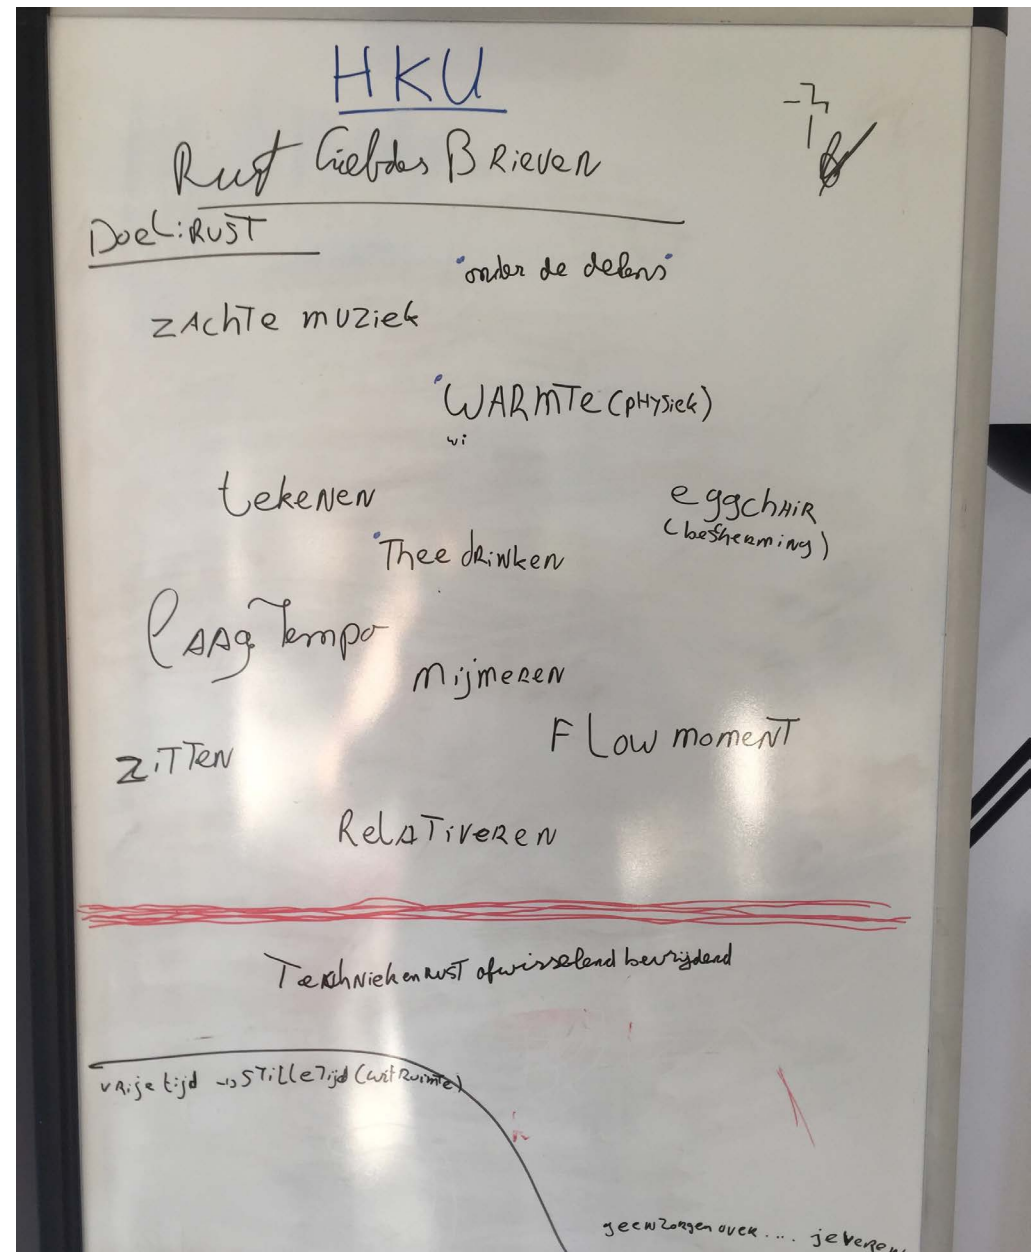 HKU
Rust Liefdes Brieven
Doel: RUST
"onder de dekens"
ZAchTe muziek
WARMTe (pHYSiek)
wi
tekeNeN
eggchAiR
(bescherming)
Thee dRiNkeN
lAAg Tempo
Mijmeren
FLow momeNT
ZiTTeN
RelATiveReN
TechNiek en RUST afwisselend bevrijdend
vRije tijd -> STiLLe Tijd (witRuimTe)
geen zorgen over .... je